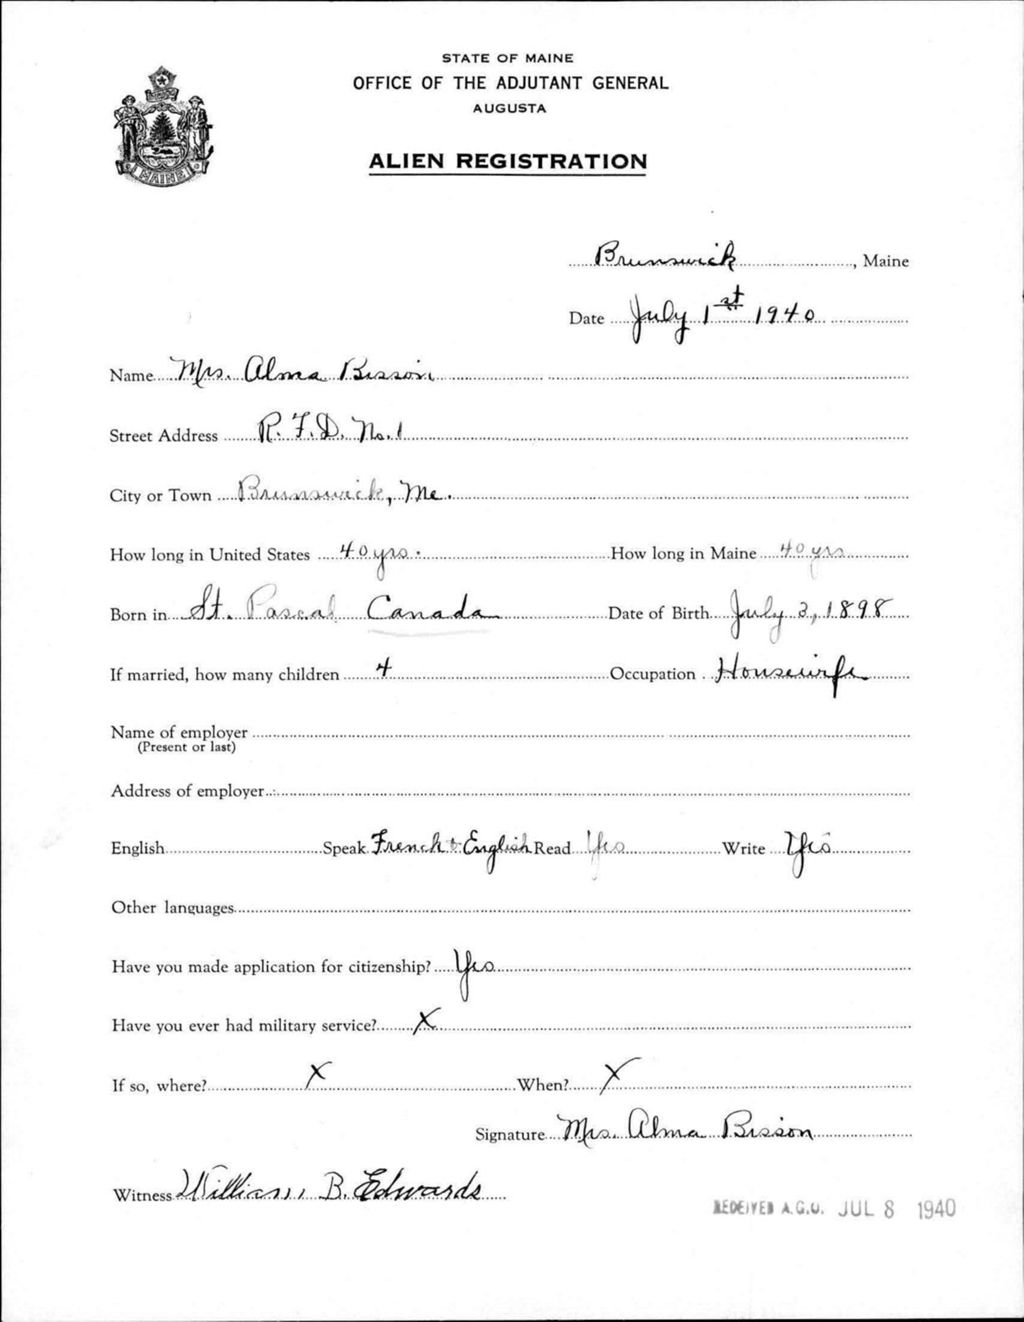 STATE OF MAINE
OFFICE OF THE ADJUTANT GENERAL
AUGUSTA
ALIEN REGISTRATION
MAINE
Brunswick, Maine
Date July 1st 1940
Name Mrs. Alma Bisson
Street Address R.F.D. No. 1
City or Town Brunswick, Me.
How long in United States 40 yrs. How long in Maine 40 yrs
Born in St. Pascal Canada Date of Birth July 3, 1898
If married, how many children 4 Occupation Housewife
Name of employer
(Present or last)
Address of employer
English Speak French & English Read Yes Write Yes
Other languages
Have you made application for citizenship? Yes
Have you ever had military service? X
If so, where? X When? X
Signature Mrs. Alma Bisson
Witness William B. Edwards
RECEIVED A.G.O. JUL 8 1940